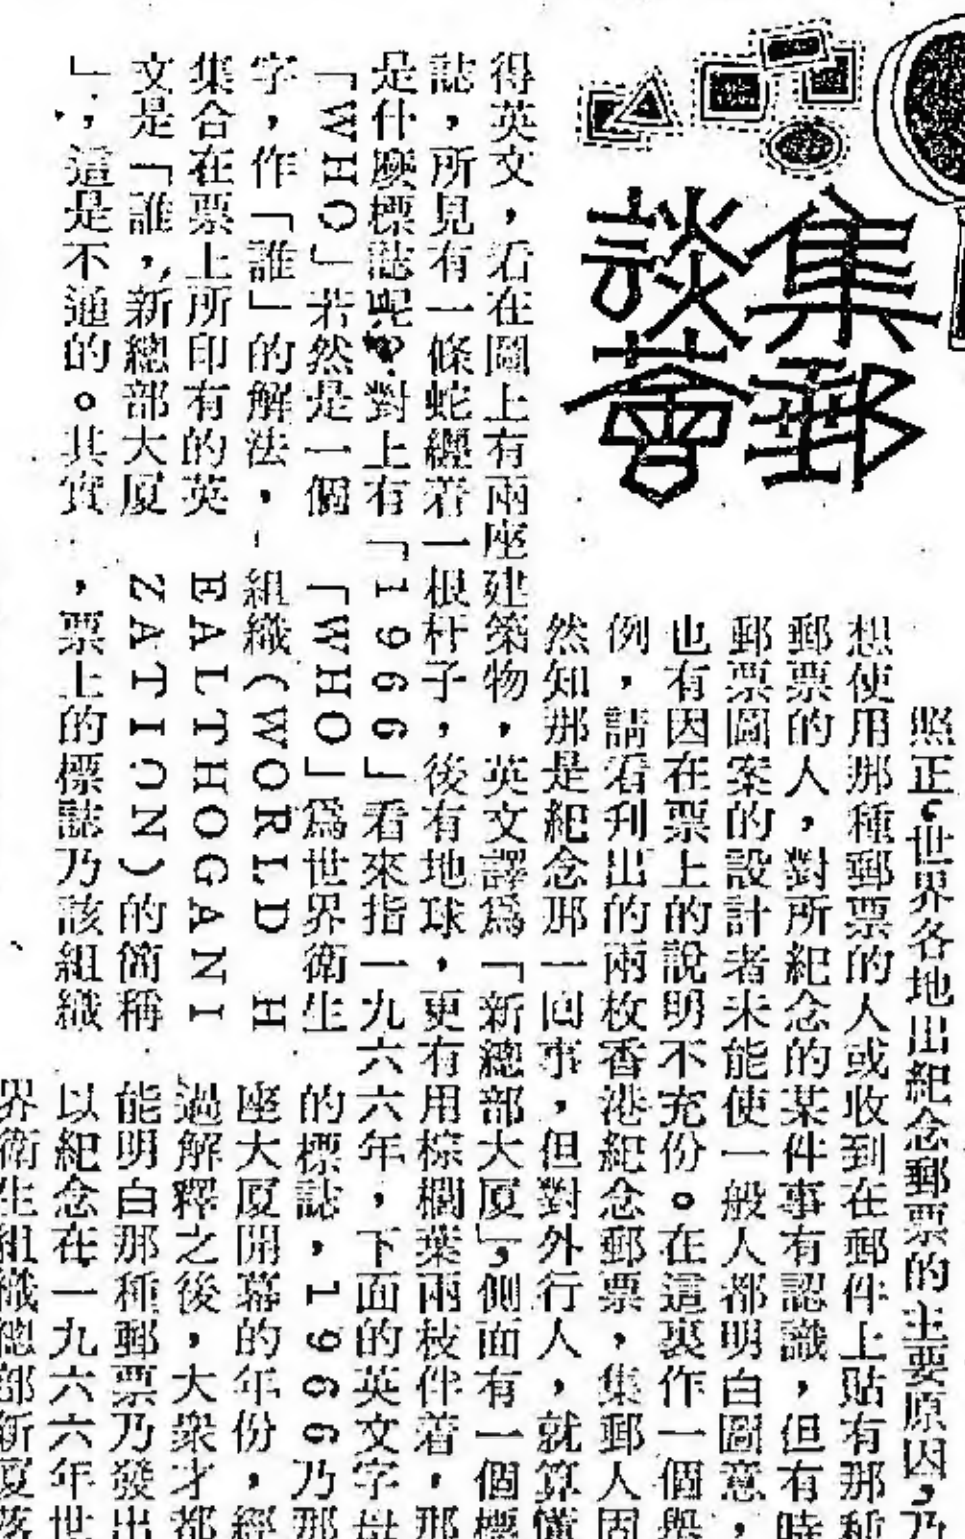 集郵
談薈
照正,世界各地出紀念郵票的主要原因,乃
想使用那種郵票的人或收到在郵件上貼有那種
郵票的人,對所紀念的某件事有認識,但有時
郵票圖案的設計者未能使一般人都明白圖意,
也有因在票上的說明不充份。在這裏作一個舉
例,請看刊出的兩枚香港紀念郵票,集郵人固
然知那是紀念那一回事,但對外行人,就算懂
得英文,看在圖上有兩座建築物,英文譯爲「新總部大厦」,側面有一個標
誌,所見有一條蛇纏着一根杆子,後有地球,更有用棕櫚葉兩枝伴着,那
是什麼標誌呢?對上有「1966」看來指一九六六年,下面的英文字母
「WHO」若然是一個
字,作「誰」的解法,
集合在票上所印有的英
文是「誰,新總部大厦
」,這是不通的。其實
「WHO」爲世界衛生
組織(WORLD H
EALTHOGANI
ZATION)的簡稱
,票上的標誌乃該組織
的標誌,1966乃那
座大厦開幕的年份,經
過解釋之後,大衆才都
能明白那種郵票乃發出
以紀念在一九六六年世
界衛生組織總部新厦落